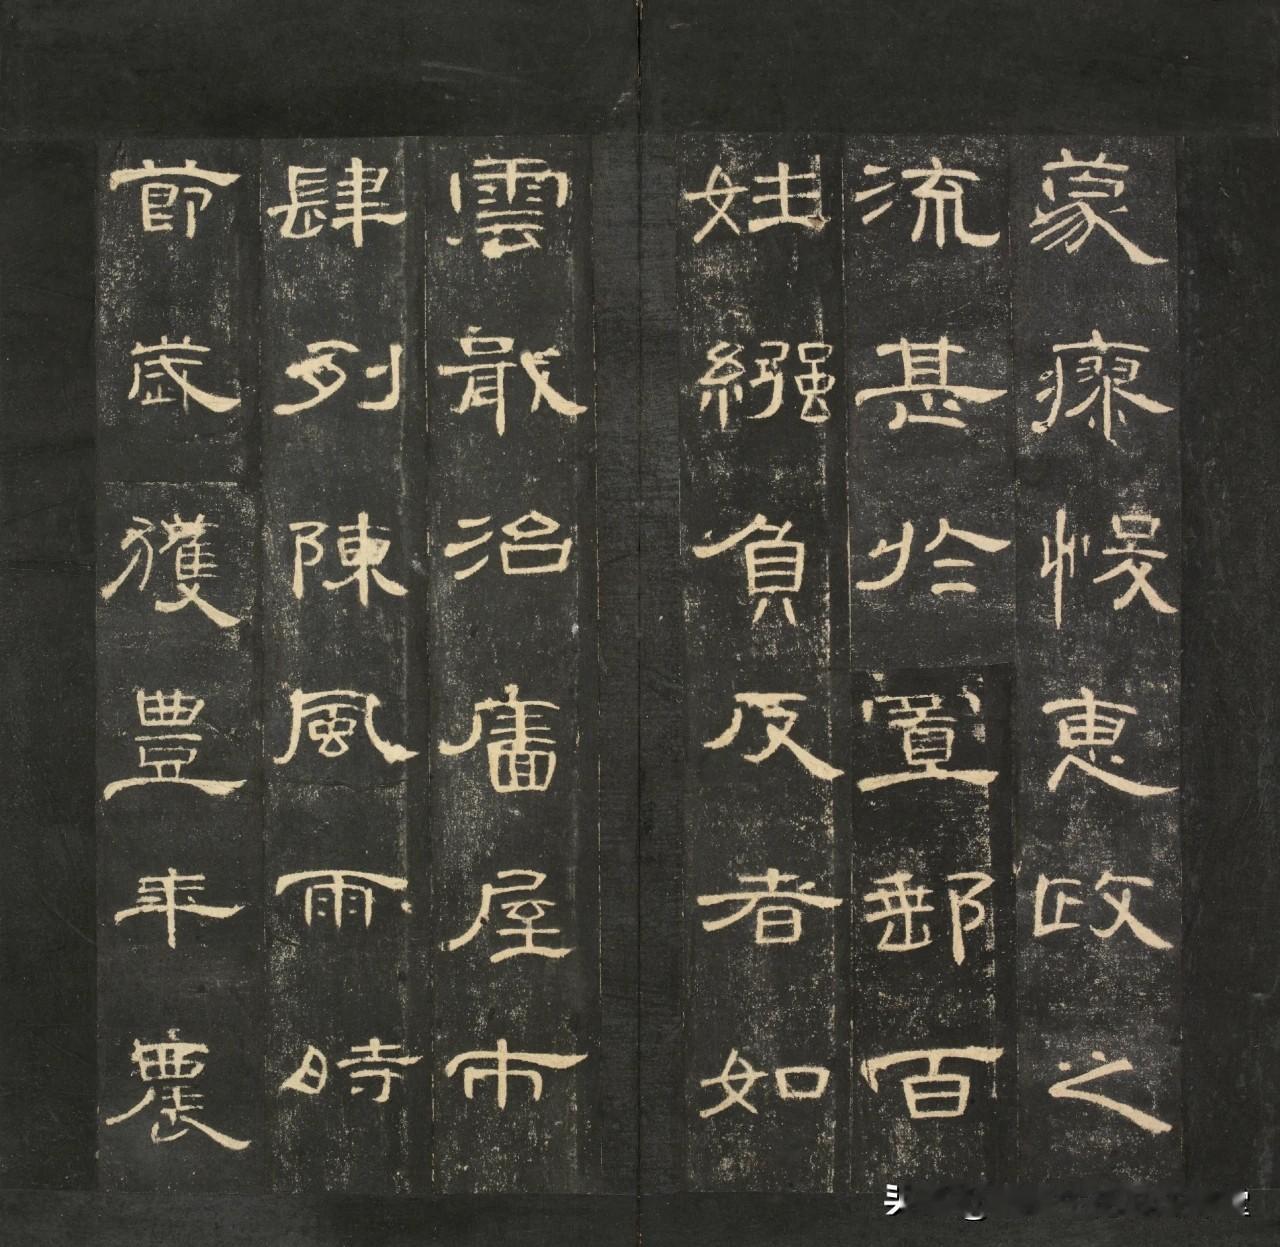 蒙瘳惠政之
流甚於置郵百
姓繈負反者如
雲戢治廧屋市
肆列陳風雨時
節歲獲豐年農